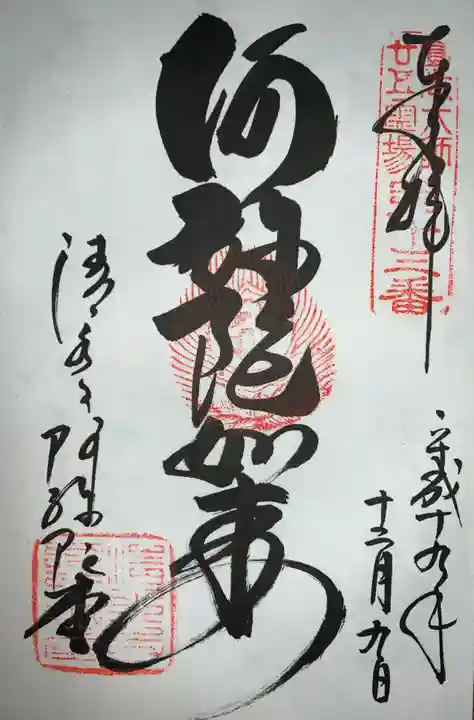 奉拝
圓光大師
廿五霊場第十三番
平成十九年
十二月九日
阿弥陀如来
清水寺阿弥陀堂